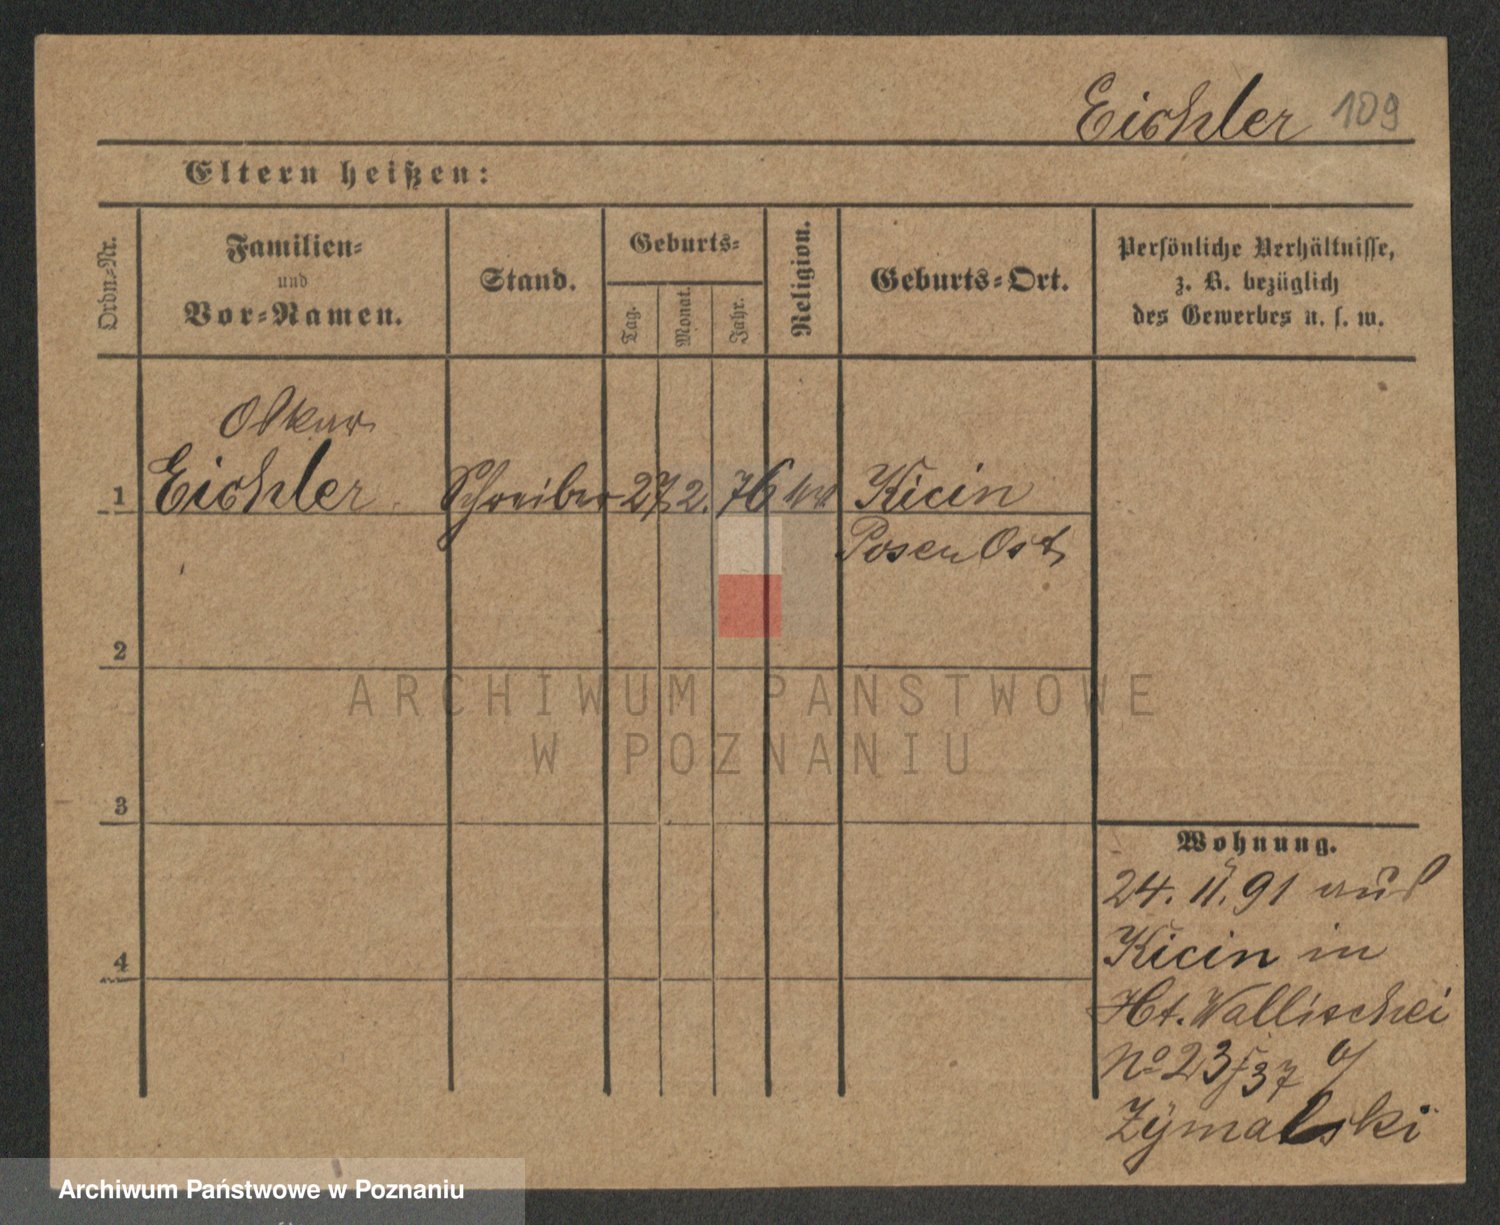 Eichler 109
Eltern heißen:
Ordn.-Nr.
Familien-
und
Vor-Namen.
Stand.
Geburts-
Tag.
Monat.
Jahr.
Religion.
Geburts-Ort.
Persönliche Verhältnisse,
z. B. bezüglich
des Gewerbes u. s. w.
Oskar
1 Eichler Schreiber 27 2. 76 Kicin
Posen Ost
2
3
4
Wohnung.
24. 11. 91 aus
Kicin in
Ht. Wallischei
No 23/37
Zÿmalski
ARCHIWUM PAŃSTWOWE
W POZNANIU
Archiwum Państwowe w Poznaniu